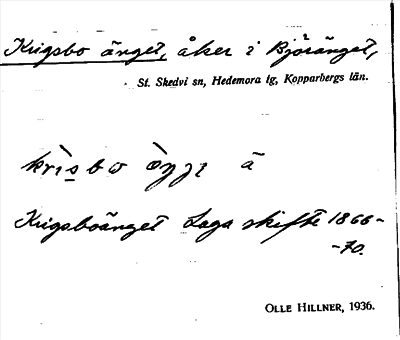 Krigsbo änget, åker i Björänget,
St. Skedvi sn, Hedemora tg, Kopparbergs län.
krìsbo
Krigsboänget Laga skifte 1866-
-70.
OLLE HILLNER, 1936.